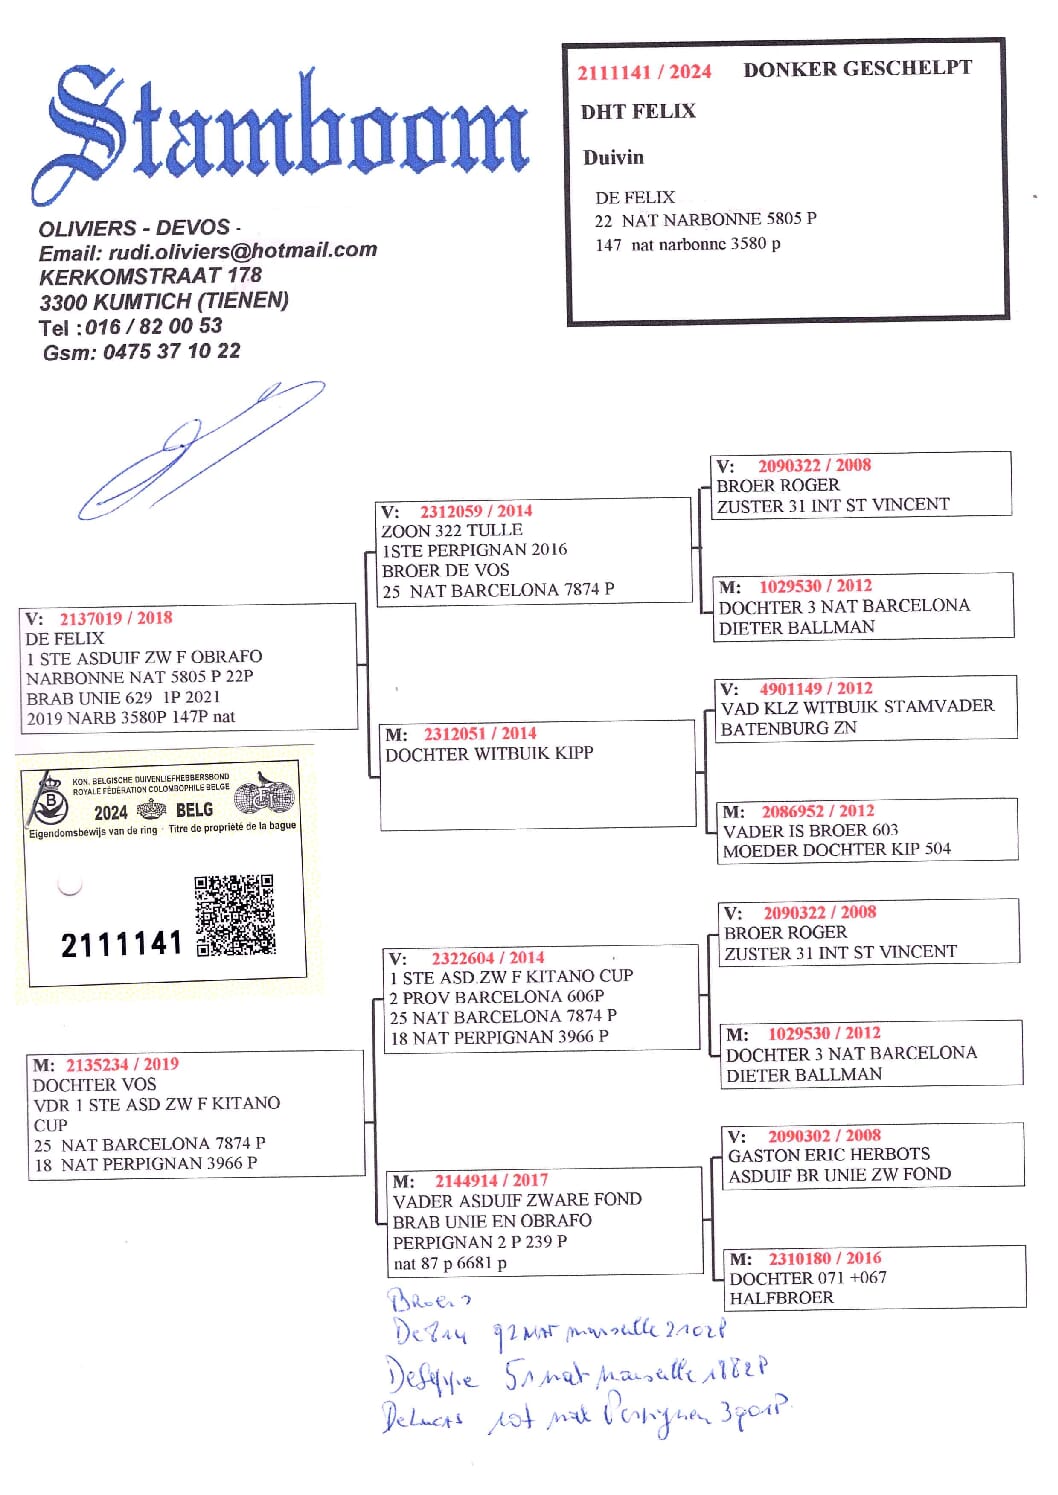 Stamboom
OLIVIERS - DEVOS -
Email: rudi.oliviers@hotmail.com
KERKOMSTRAAT 178
3300 KUMTICH (TIENEN)
Tel : 016 / 82 00 53
Gsm: 0475 37 10 22
2111141 / 2024 DONKER GESCHELPT
DHT FELIX
Duivin
DE FELIX
22 NAT NARBONNE 5805 P
147 nat narbonne 3580 p
V: 2137019 / 2018
DE FELIX
1 STE ASDUIF ZW F OBRAFO
NARBONNE NAT 5805 P 22P
BRAB UNIE 629 1P 2021
2019 NARB 3580P 147P nat
KON. BELGISCHE DUIVENLIEFHEBBERSBOND
ROYALE FÉDÉRATION COLOMBOPHILE BELGE
B
2024 BELG
Eigendomsbewijs van de ring - Titre de propriété de la bague
2111141
M: 2135234 / 2019
DOCHTER VOS
VDR 1 STE ASD ZW F KITANO
CUP
25 NAT BARCELONA 7874 P
18 NAT PERPIGNAN 3966 P
V: 2312059 / 2014
ZOON 322 TULLE
1STE PERPIGNAN 2016
BROER DE VOS
25 NAT BARCELONA 7874 P
M: 2312051 / 2014
DOCHTER WITBUIK KIPP
V: 2322604 / 2014
1 STE ASD.ZW F KITANO CUP
2 PROV BARCELONA 606P
25 NAT BARCELONA 7874 P
18 NAT PERPIGNAN 3966 P
M: 2144914 / 2017
VADER ASDUIF ZWARE FOND
BRAB UNIE EN OBRAFO
PERPIGNAN 2 P 239 P
nat 87 p 6681 p
V: 2090322 / 2008
BROER ROGER
ZUSTER 31 INT ST VINCENT
M: 1029530 / 2012
DOCHTER 3 NAT BARCELONA
DIETER BALLMAN
V: 4901149 / 2012
VAD KLZ WITBUIK STAMVADER
BATENBURG ZN
M: 2086952 / 2012
VADER IS BROER 603
MOEDER DOCHTER KIP 504
V: 2090322 / 2008
BROER ROGER
ZUSTER 31 INT ST VINCENT
M: 1029530 / 2012
DOCHTER 3 NAT BARCELONA
DIETER BALLMAN
V: 2090302 / 2008
GASTON ERIC HERBOTS
ASDUIF BR UNIE ZW FOND
M: 2310180 / 2016
DOCHTER 071 +067
HALFBROER
Broers
92 nat marseille 2102P
De Seppe 51 nat marseille 1882P
De Lucas 107 nat Perpignan 3901P